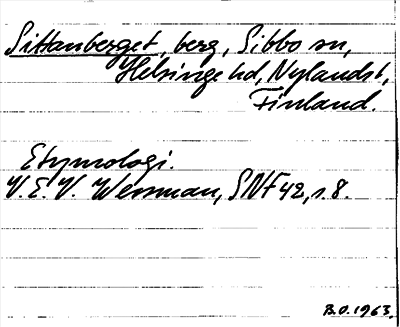 Sittanberget, berg, Sibbo sn,
Helsinge hd, Nylandsl,
Finland.
Etymologi.
V.E.V. Wessman, SNF 42, s. 8.
B.O. 1963.